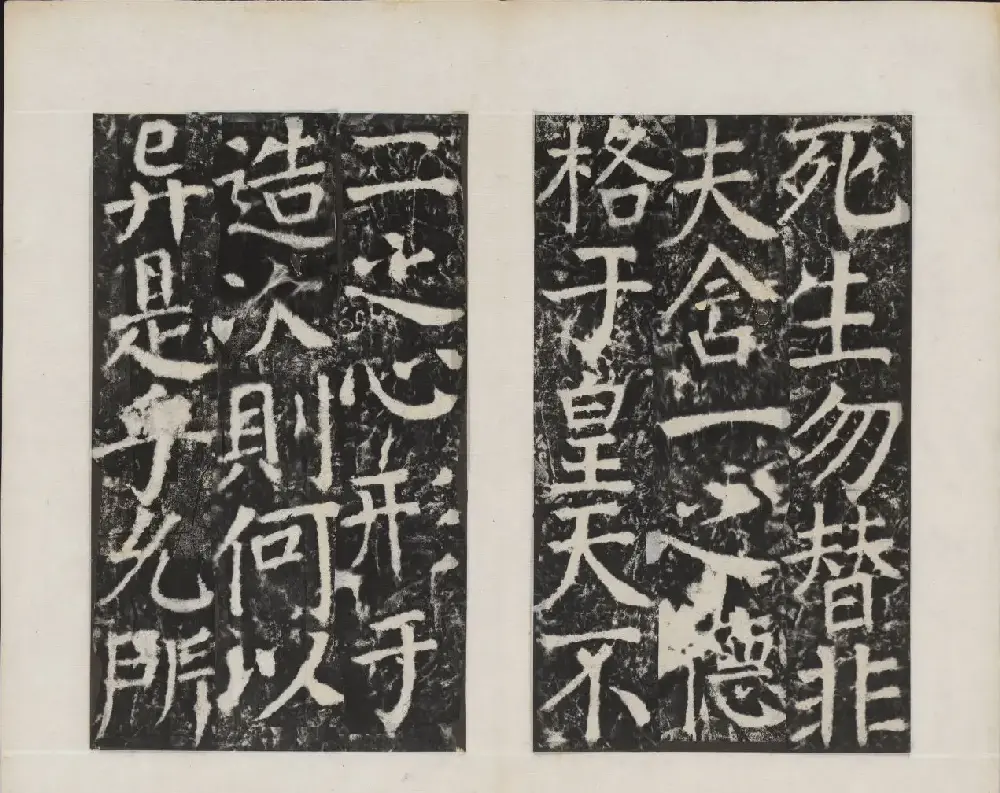 死生勿替非
夫含一之德
格于皇天不
二之心形于
造次則何以
异是乎凡所